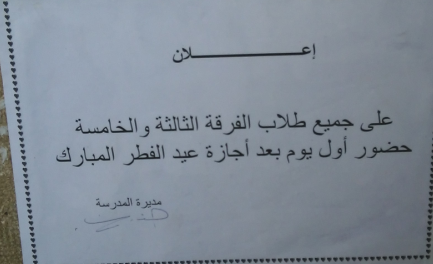 إعـــــــــــــلان
على جميع طلاب الفرقة الثالثة والخامسة
حضور أول يوم بعد أجازة عيد الفطر المبارك
مديرة المدرسة